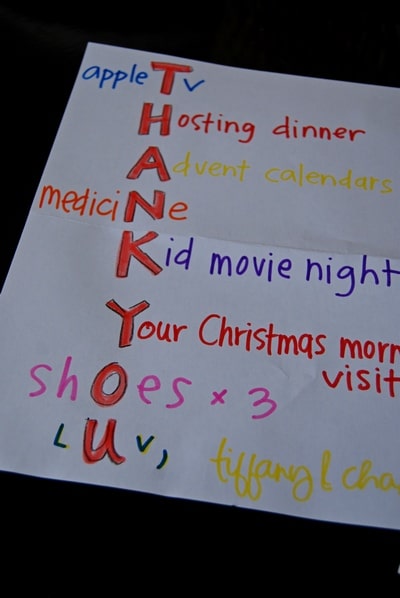 apple Tv
Hosting dinner
Advent calendars
mediciNe
Kid movie night
Your Christmas
visit
shOes x 3
LUv,
tiffany &